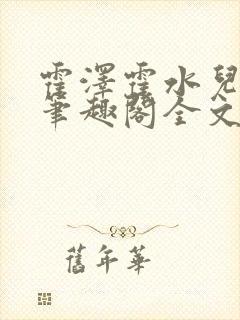 霍澤霍水兒
筆趣閣全文
舊年華